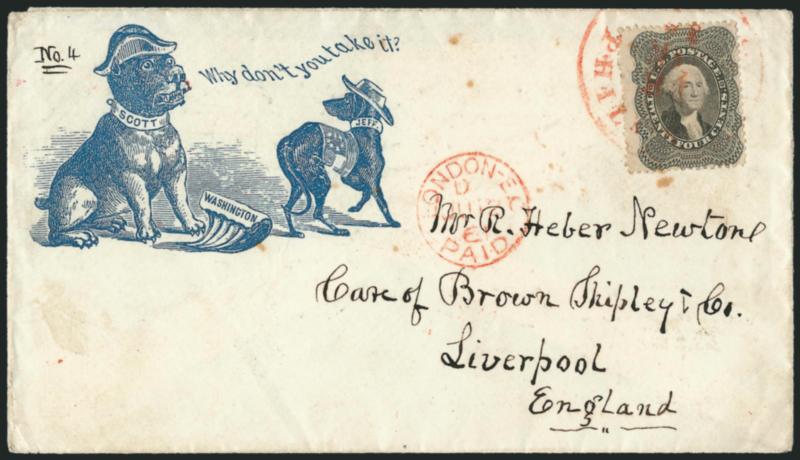 No. 4
Why don't you take it?
SCOTT
JEFF
WASHINGTON
PHIL
U.S. POSTAGE
TWENTY FOUR CENTS
LONDON-E.C.
PAID
Mr R. Heber Newton
Care of Brown Shipley & Co.
Liverpool
England